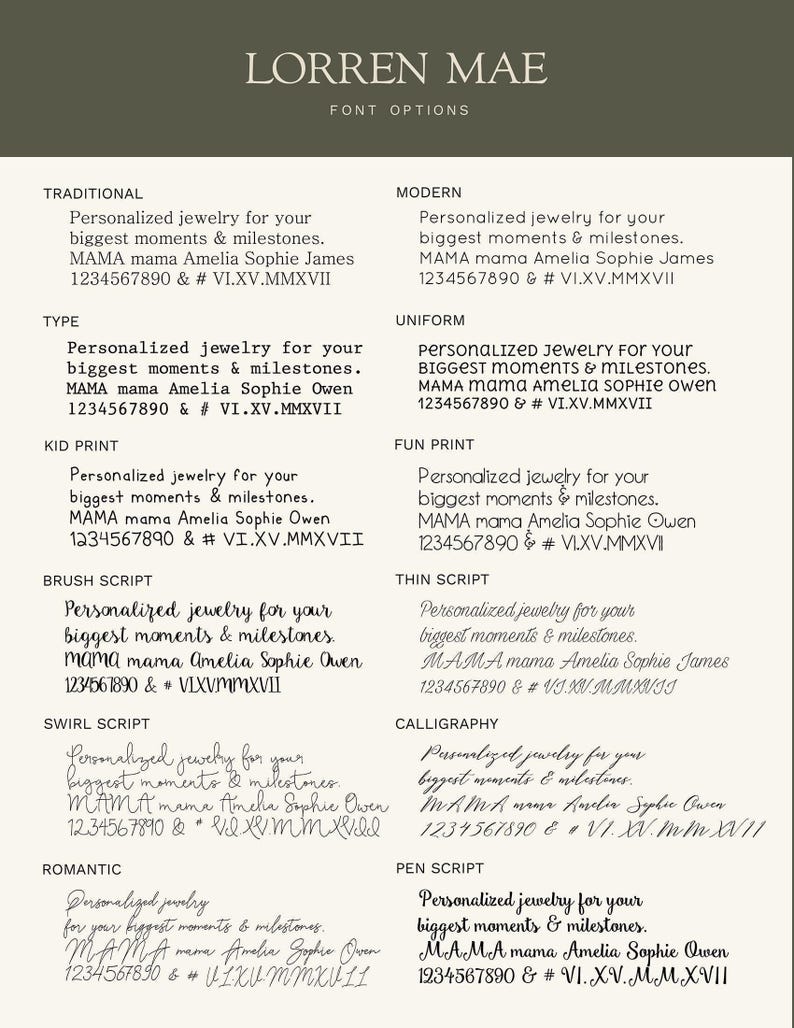 LORREN MAE
FONT OPTIONS
TRADITIONAL
Personalized jewelry for your
biggest moments & milestones.
MAMA mama Amelia Sophie James
1234567890 & # VI.XV.MMXVII
MODERN
Personalized jewelry for your
biggest moments & milestones.
MAMA mama Amelia Sophie James
1234567890 & # VI.XV.MMXVII
TYPE
Personalized jewelry for your
biggest moments & milestones.
MAMA mama Amelia Sophie Owen
1234567890 & # VI.XV.MMXVII
UNIFORM
Personalized jewelry for your
biggest moments & milestones.
MAMA mama Amelia Sophie Owen
1234567890 & # VI.XV.MMXVII
KID PRINT
Personalized jewelry for your
biggest moments & milestones.
MAMA mama Amelia Sophie Owen
1234567890 & # VI.XV.MMXVII
FUN PRINT
Personalized jewelry for your
biggest moments & milestones.
MAMA mama Amelia Sophie Owen
1234567890 & # VI.XV.MMXVII
BRUSH SCRIPT
Personalized jewelry for your
biggest moments & milestones.
MAMA mama Amelia Sophie Owen
1234567890 & # VI.XV.MMXVII
THIN SCRIPT
Personalized jewelry for your
biggest moments & milestones.
MAMA mama Amelia Sophie James
1234567890 & # VI.XV.MMXVII
SWIRL SCRIPT
Personalized jewelry for your
biggest moments & milestones.
MAMA mama Amelia Sophie Owen
1234567890 & # VI.XV.MMXVII
CALLIGRAPHY
Personalized jewelry for your
biggest moments & milestones.
MAMA mama Amelia Sophie Owen
1234567890 & # VI.XV.MMXVII
ROMANTIC
Personalized jewelry
for your biggest moments & milestones.
MAMA mama Amelia Sophie Owen
1234567890 & # VI.XV.MMXVII
PEN SCRIPT
Personalized jewelry for your
biggest moments & milestones.
MAMA mama Amelia Sophie Owen
1234567890 & # VI.XV.MMXVII